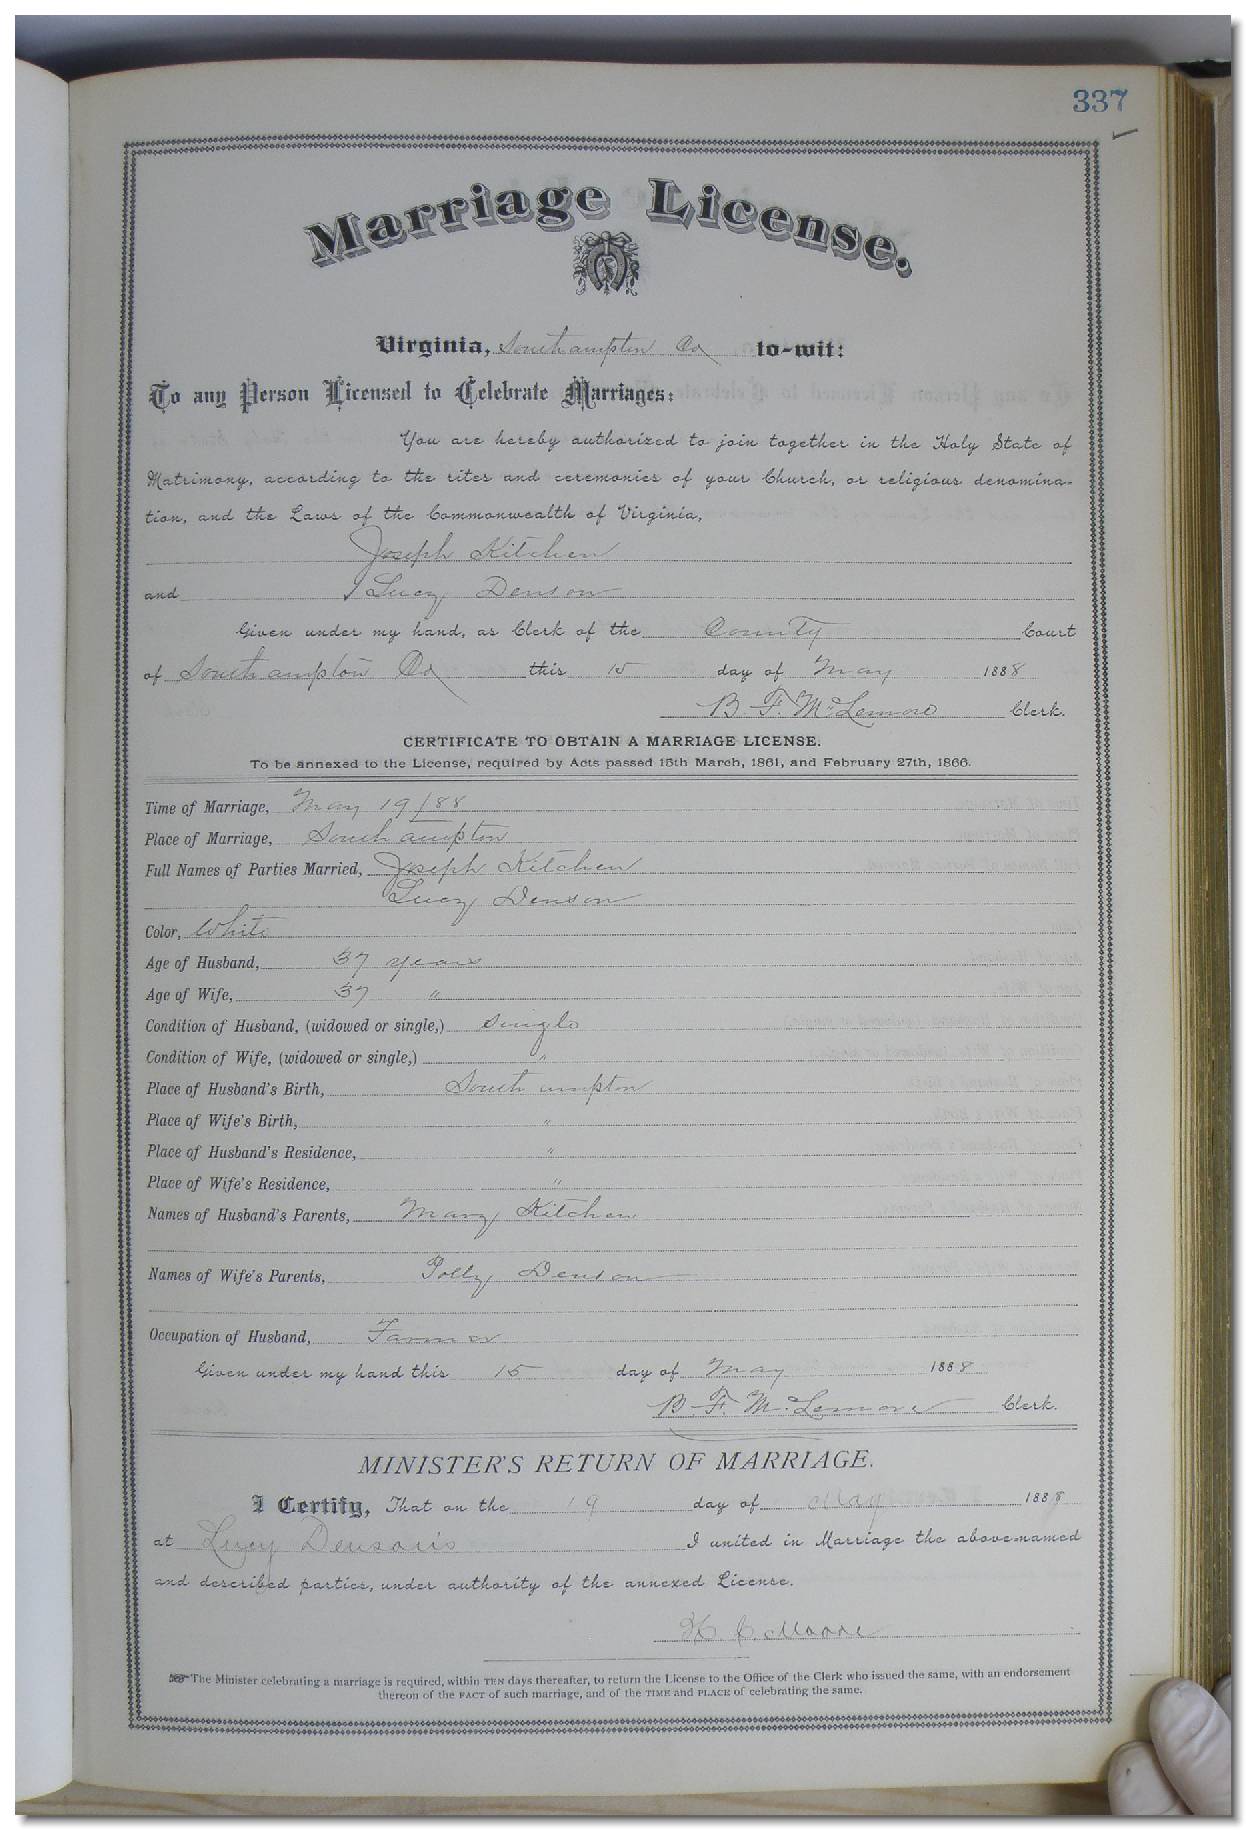 337
Marriage License.
Virginia, Southampton Co to-wit:
To any Person Licensed to Celebrate Marriages:
You are hereby authorized to join together in the Holy State of
Matrimony, according to the rites and ceremonies of your Church, or religious denomina-
tion, and the Laws of the Commonwealth of Virginia,
Joseph Kitchen
and Lucy Denson
Given under my hand, as Clerk of the County Court
of Southampton Co this 15 day of May 1888
B. F. McLemore Clerk.
CERTIFICATE TO OBTAIN A MARRIAGE LICENSE.
To be annexed to the License, required by Acts passed 15th March, 1861, and February 27th, 1866.
Time of Marriage, May 19/88
Place of Marriage, Southampton
Full Names of Parties Married, Joseph Kitchen
Lucy Denson
Color, White
Age of Husband, 37 years
Age of Wife, 37 "
Condition of Husband, (widowed or single,) Single
Condition of Wife, (widowed or single,) "
Place of Husband's Birth, Southampton
Place of Wife's Birth, "
Place of Husband's Residence, "
Place of Wife's Residence, "
Names of Husband's Parents, Mary Kitchen
Names of Wife's Parents, Polly Denson
Occupation of Husband, Farmer
Given under my hand this 15 day of May 1888
B. F. McLemore Clerk.
MINISTER'S RETURN OF MARRIAGE.
I Certify, That on the 19 day of May 1888
at Lucy Denson's I united in Marriage the above-named
and described parties, under authority of the annexed License.
Moore
The Minister celebrating a marriage is required, within TEN days thereafter, to return the License to the Office of the Clerk who issued the same, with an endorsement
thereon of the FACT of such marriage, and of the TIME and PLACE of celebrating the same.